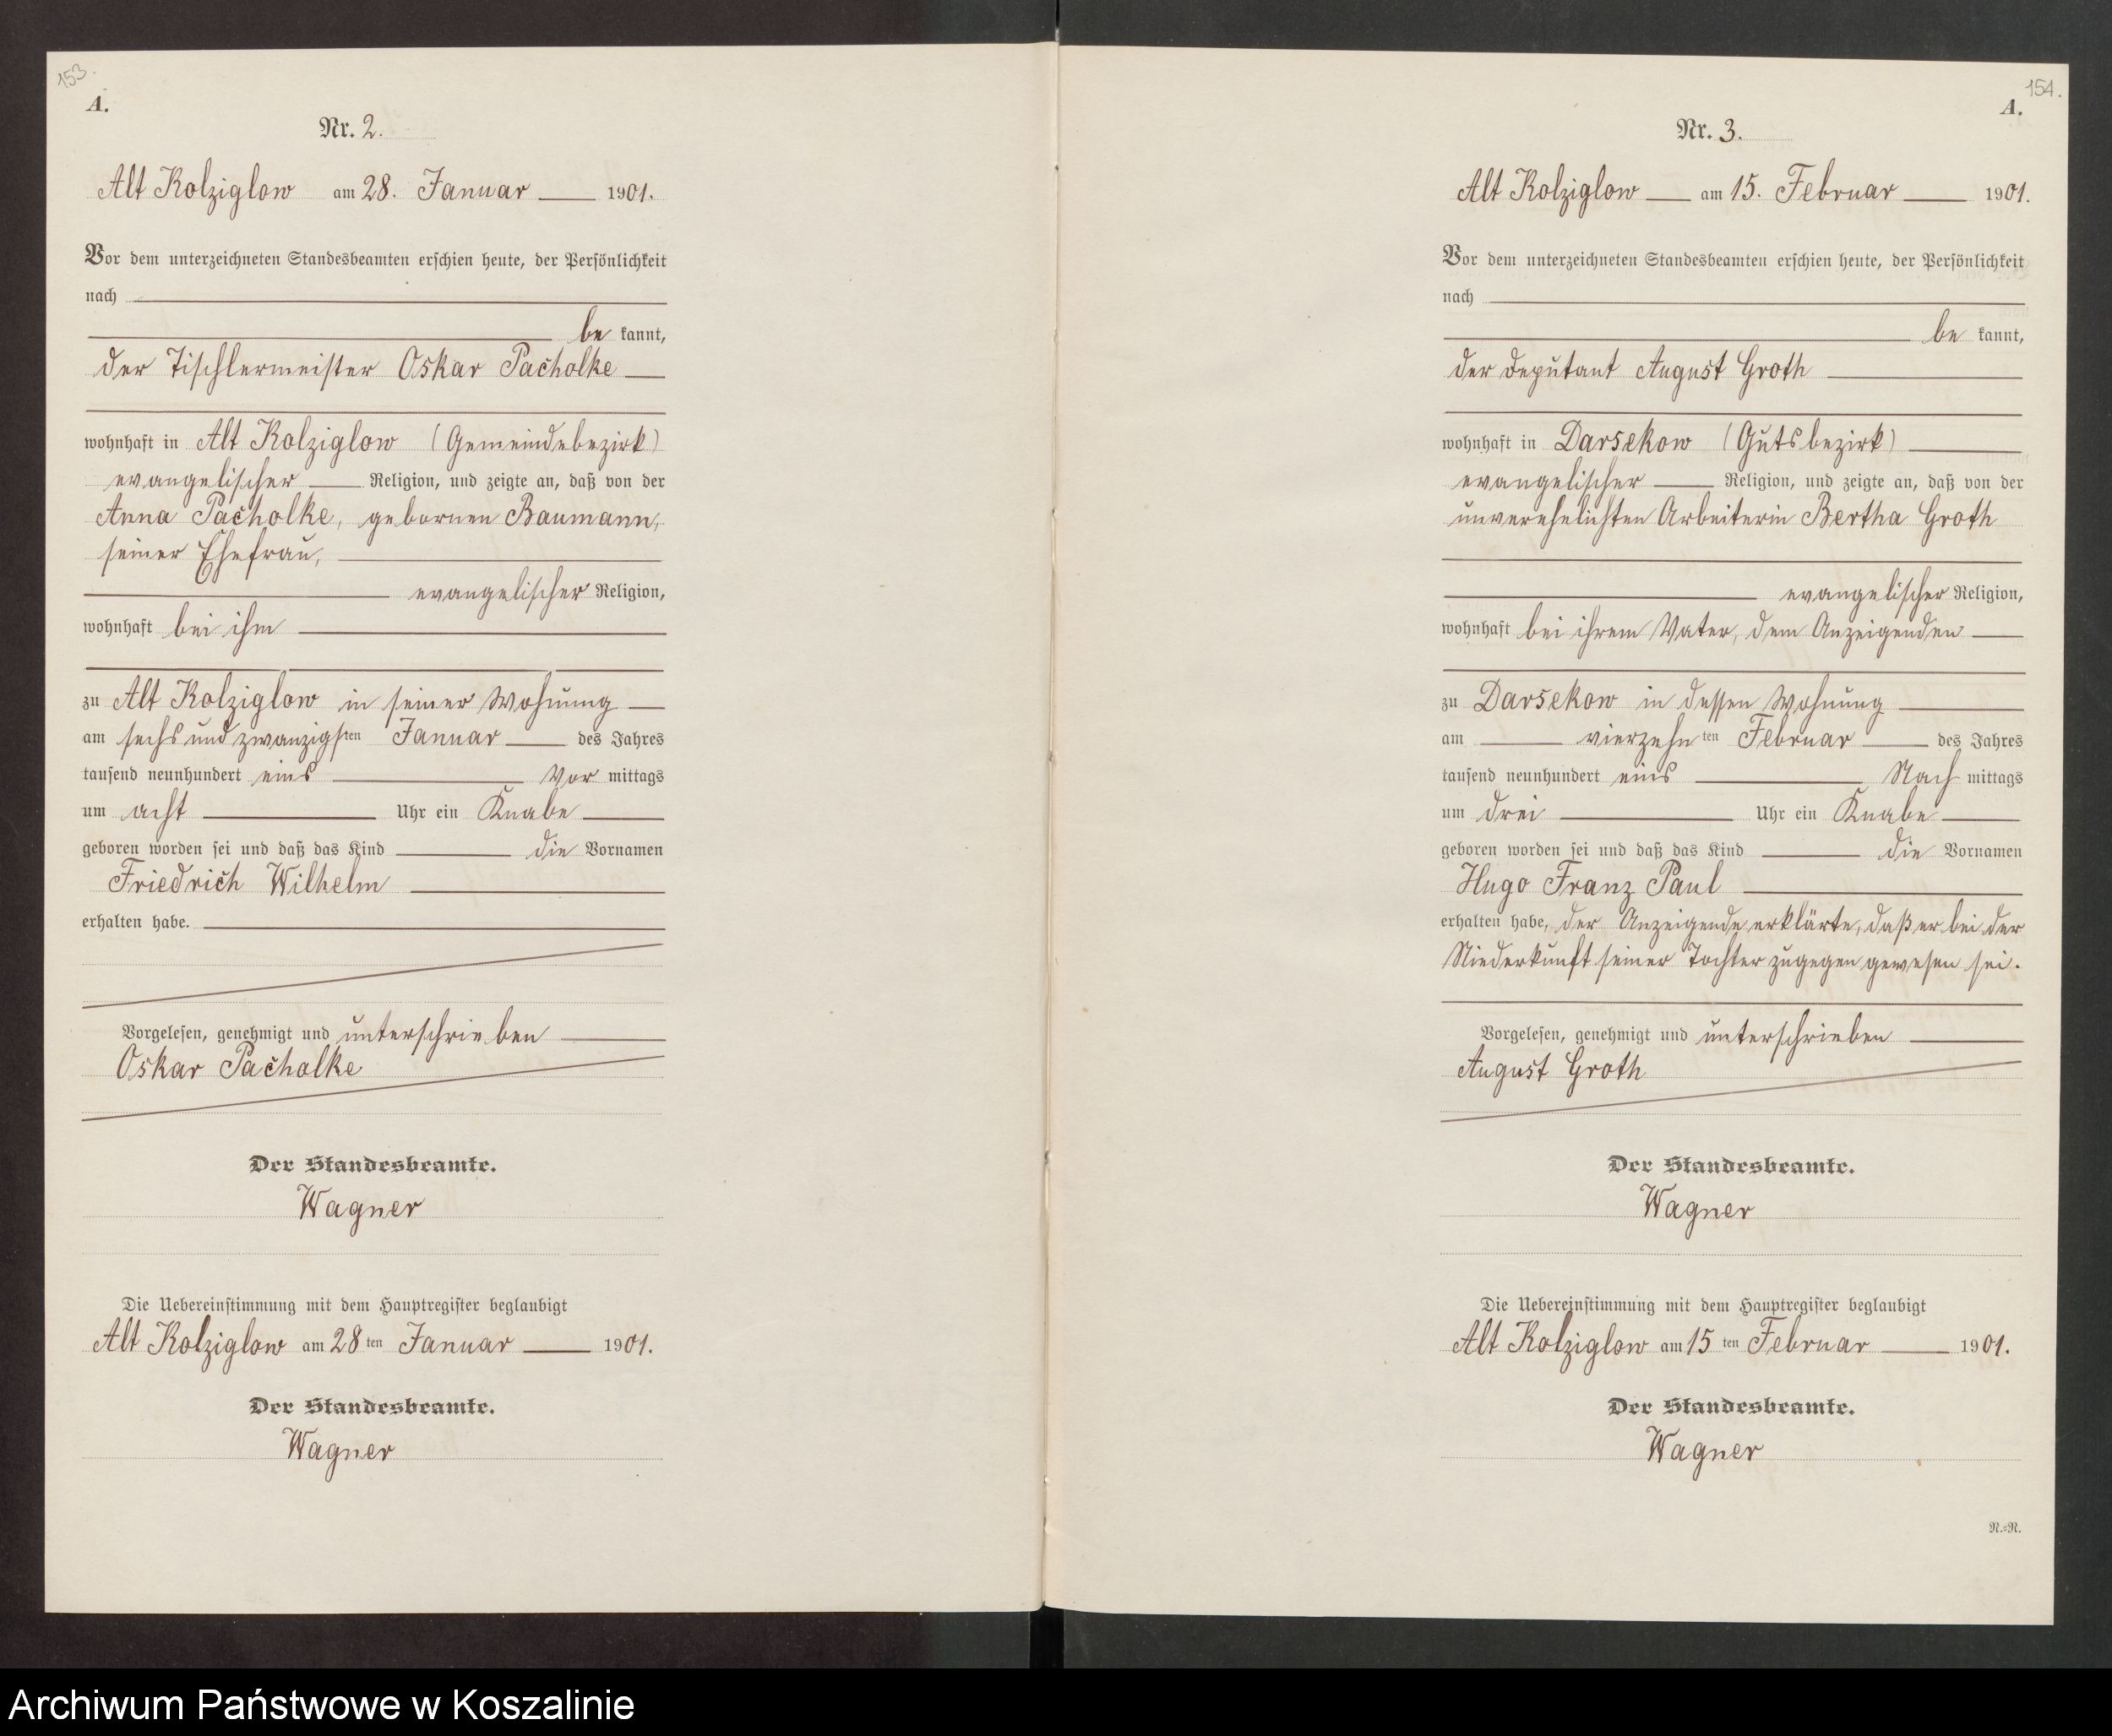 153.
A.
Nr. 2.
Alt Kolziglow am 28. Januar 1901.
Vor dem unterzeichneten Standesbeamten erschien heute, der Persönlichkeit
nach
be kannt,
der Tischlermeister Oskar Pacholke
wohnhaft in Alt Kolziglow (Gemeindebezirk)
evangelischer Religion, und zeigte an, daß von der
Anna Pacholke, gebornen Baumann,
seiner Ehefrau,
evangelischer Religion,
wohnhaft bei ihm
zu Alt Kolziglow in seiner Wohnung
am sechs und zwanzigsten Januar des Jahres
tausend neunhundert eins Vor mittags
um acht Uhr ein Knabe
geboren worden sei und daß das Kind die Vornamen
Friedrich Wilhelm
erhalten habe.
Vorgelesen, genehmigt und unterschrieben
Oskar Pacholke
Der Standesbeamte.
Wagner
Die Uebereinstimmung mit dem Hauptregister beglaubigt
Alt Kolziglow am 28 ten Januar 1901.
Der Standesbeamte.
Wagner
154.
A.
Nr. 3.
Alt Kolziglow am 15. Februar 1901.
Vor dem unterzeichneten Standesbeamten erschien heute, der Persönlichkeit
nach
be kannt,
der Deputant August Groth
wohnhaft in Darsekow (Gutsbezirk)
evangelischer Religion, und zeigte an, daß von der
unverehelichten Arbeiterin Bertha Groth
evangelischer Religion,
wohnhaft bei ihrem Vater, dem Anzeigenden
zu Darsekow in dessen Wohnung
am vierzehn ten Februar des Jahres
tausend neunhundert eins Nach mittags
um drei Uhr ein Knabe
geboren worden sei und daß das Kind die Vornamen
Hugo Franz Paul
erhalten habe, der Anzeigende erklärte, daß er bei der
Niederkunft seiner Tochter zugegen gewesen sei.
Vorgelesen, genehmigt und unterschrieben
August Groth
Der Standesbeamte.
Wagner
Die Uebereinstimmung mit dem Hauptregister beglaubigt
Alt Kolziglow am 15 ten Februar 1901.
Der Standesbeamte.
Wagner
N.=N.
Archiwum Państwowe w Koszalinie